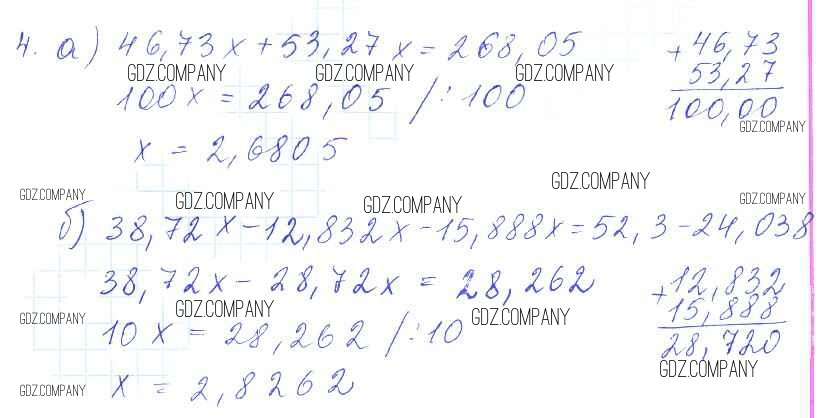 4. а) 46,73x + 53,27x = 268,05
+ 46,73
53,27
100,00
GDZ.COMPANY GDZ.COMPANY GDZ.COMPANY
100x = 268,05 /:100
GDZ.COMPANY
x = 2,6805
GDZ.COMPANY
GDZ.COMPANY GDZ.COMPANY GDZ.COMPANY GDZ.COMPANY
б) 38,72x - 12,832x - 15,888x = 52,3 - 24,038
38,72x - 28,72x = 28,262
+ 12,832
15,888
28,720
GDZ.COMPANY GDZ.COMPANY GDZ.COMPANY
10x = 28,262 /:10
GDZ.COMPANY
GDZ.COMPANY
x = 2,8262